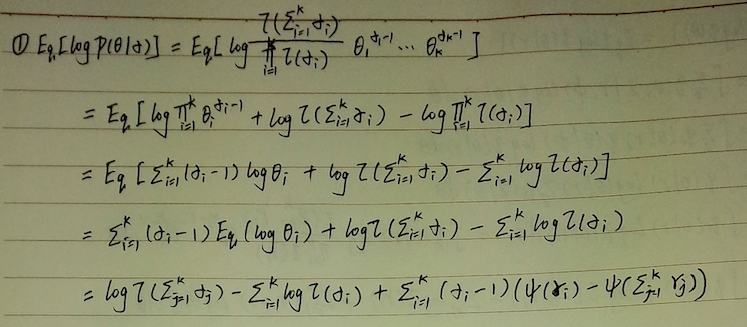 ① Eq[log P(θ|α)] = Eq[log Γ(Σ_{i=1}^k α_i) / ∏_{i=1}^k Γ(α_i) θ_1^{α_1-1} ··· θ_k^{α_k-1}]
= Eq[log ∏_{i=1}^k θ_i^{α_i-1} + log Γ(Σ_{i=1}^k α_i) - log ∏_{i=1}^k Γ(α_i)]
= Eq[Σ_{i=1}^k (α_i-1) log θ_i + log Γ(Σ_{i=1}^k α_i) - Σ_{i=1}^k log Γ(α_i)]
= Σ_{i=1}^k (α_i-1) Eq(log θ_i) + log Γ(Σ_{i=1}^k α_i) - Σ_{i=1}^k log Γ(α_i)
= log Γ(Σ_{j=1}^k α_j) - Σ_{i=1}^k log Γ(α_i) + Σ_{i=1}^k (α_i-1)(ψ(γ_i) - ψ(Σ_{j=1}^k γ_j))